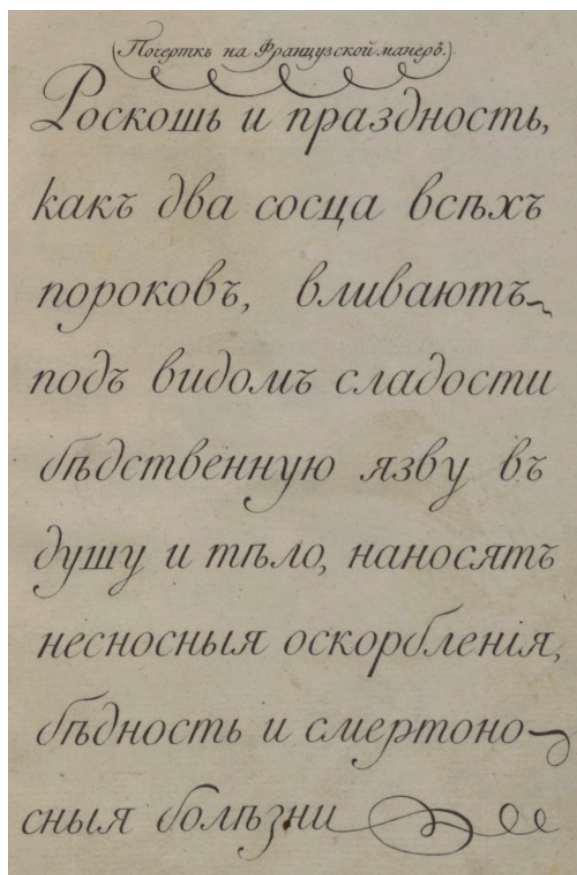 (Почеркъ на Французской манеръ.)
Роскошь и праздность,
какъ два сосца всѣхъ
пороковъ, вливаютъ
подъ видомъ сладости
бѣдственную язву въ
душу и тѣло, наносятъ
несносныя оскорбленія,
бѣдность и смертоно-
сныя болѣзни